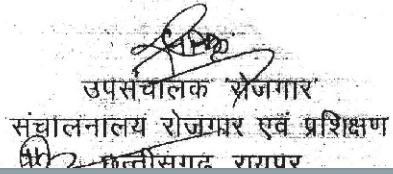 उपसंचालक रोजगार
संचालनालय रोजगार एवं प्रशिक्षण
छत्तीसगढ़ रायपुर